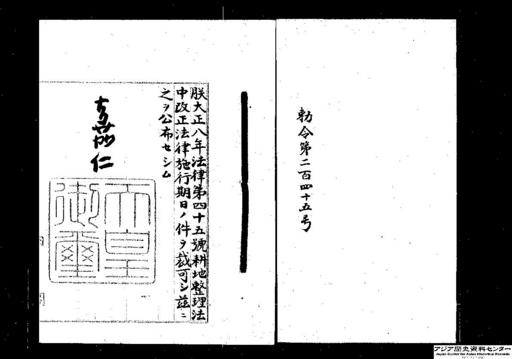 勅令第二百四十五号
朕大正八年法律第四十五號耕地整理法
中改正法律施行期日ノ件ヲ裁可シ茲ニ
之ヲ公布セシム
嘉仁
天皇
御璽
アジア歴史資料センター
Japan Center for Asian Historical Records